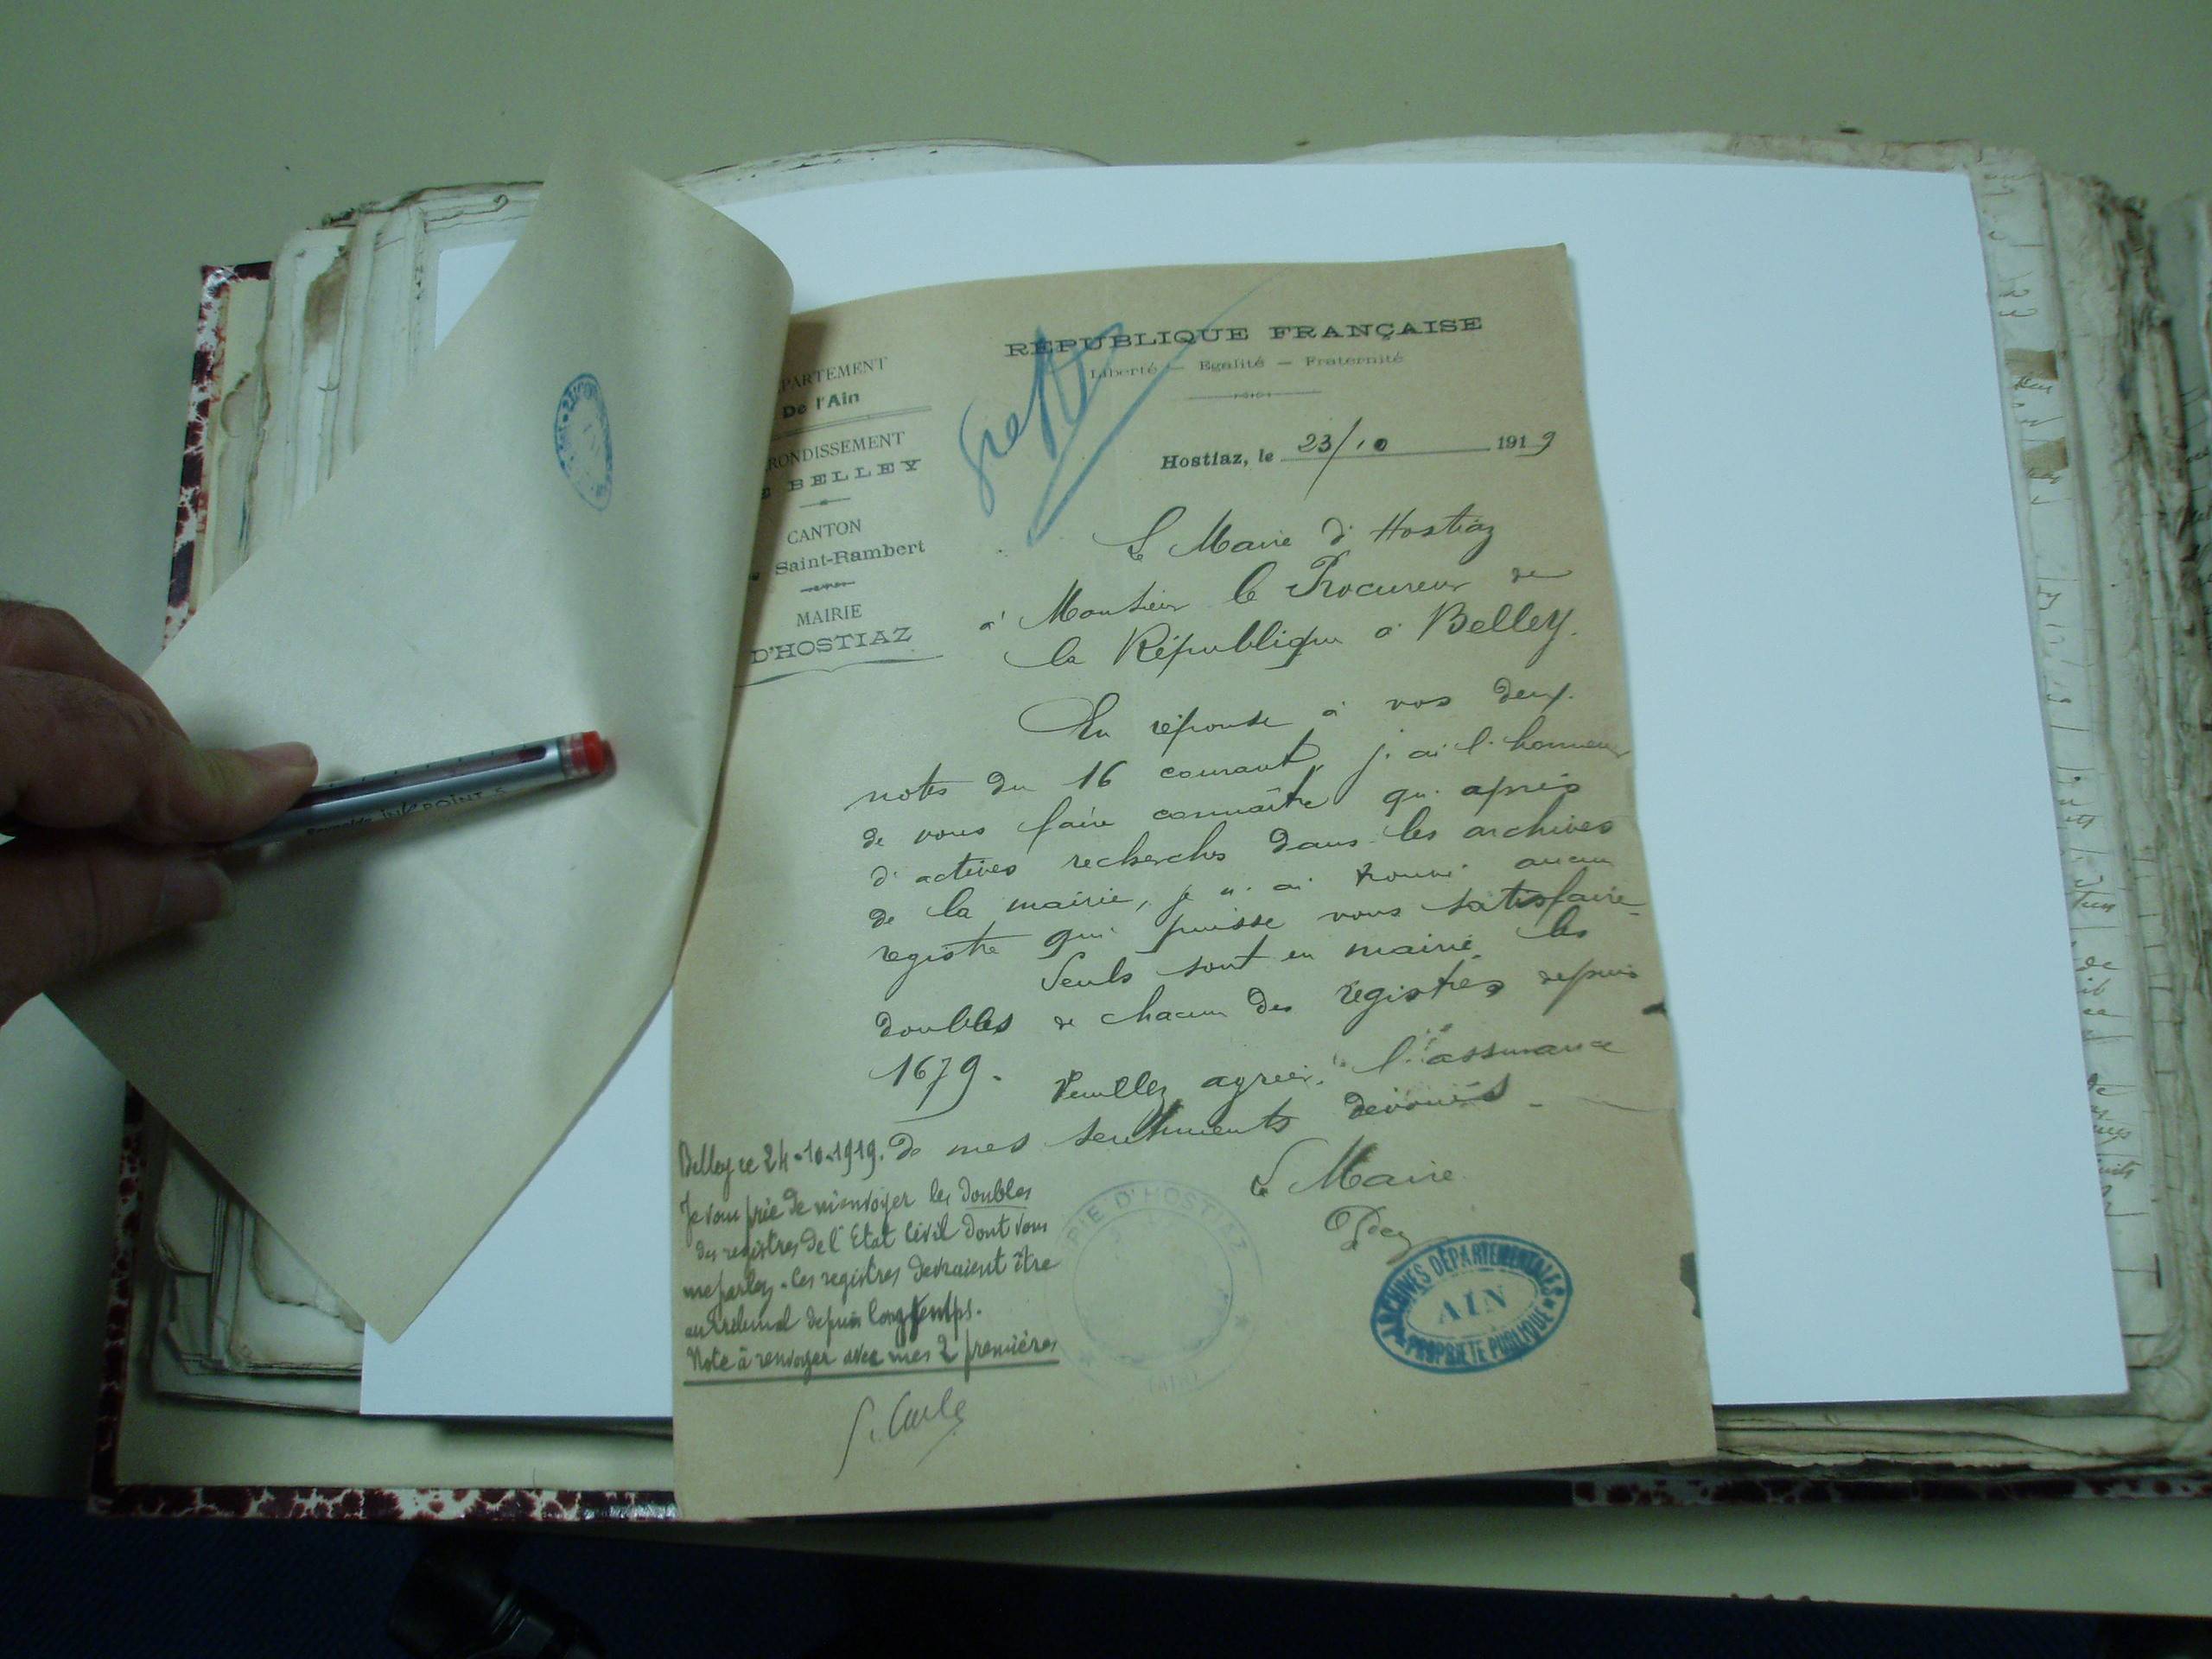 RÉPUBLIQUE FRANÇAISE
Liberté — Egalité — Fraternité
PARTEMENT
De l'Ain
RONDISSEMENT
E BELLEY
CANTON
Saint-Rambert
MAIRIE
D'HOSTIAZ
Greffe
Hostiaz, le 23/10 1919
Le Maire d'Hostiaz
à Monsieur le Procureur de
la République à Belley.
En réponse à vos deux
notes du 16 courant, j'ai l'honneur
de vous faire connaître qu'après
d'actives recherches dans les archives
de la mairie, je n'ai trouvé aucun
registre qui puisse vous satisfaire
Seuls sont en mairie les
doubles de chacun des registres depuis
1679.
Veuillez agréer, l'assurance
de mes sentiments dévoués
Le Maire
Belley ce 24-10-1919.
Je vous prie de m'envoyer les doubles
des registres de l'Etat Civil dont vous
me parlez. Ces registres devraient être
au tribunal depuis longtemps.
Note à renvoyer avec mes 2 premières
MAIRIE D'HOSTIAZ
(AIN)
ARCHIVES DÉPARTEMENTALES
AIN
PROPRIÉTÉ PUBLIQUE
Reynolds ink POINT